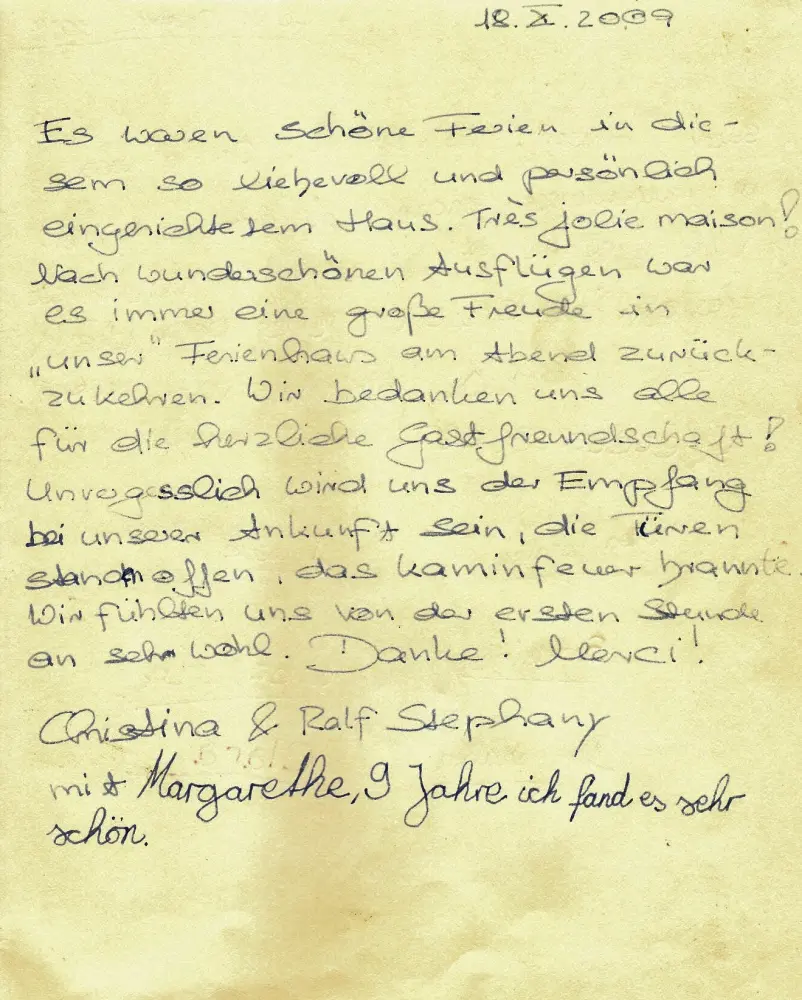 18. X. 2009
Es waren schöne Ferien in die-
sem so liebevoll und persönlich
eingerichtetem Haus. Très jolie maison!
Nach wunderschönen Ausflügen war
es immer eine große Freude in
„unser" Ferienhaus am Abend zurück-
zukehren. Wir bedanken uns alle
für die herzliche Gastfreundschaft!
Unvergesslich wird uns der Empfang
bei unserer Ankunft sein, die Türen
standen offen, das Kaminfeuer brannte.
Wir fühlten uns von der ersten Stunde
an sehr wohl. Danke! Merci!
Christina & Ralf Stephany
mit Margarethe, 9 Jahre ich fand es sehr
schön.